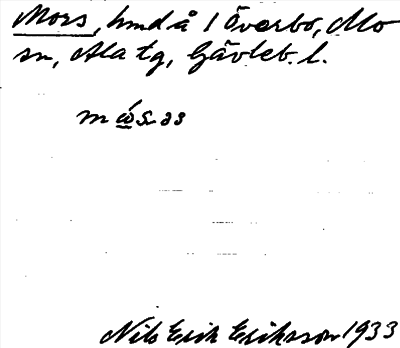 Mors, hmd å 1 Överbo, Mo
sn, Ala tg, Gävleb. l.
Nils Erik Eriksson 1933